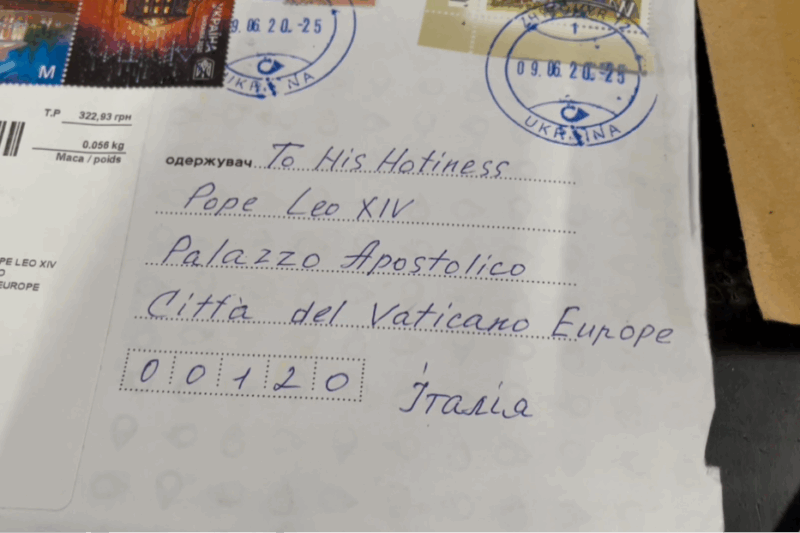 M
УКРАЇНА
9.06.20.-25
UKRAINA
12
1
09.06.20.-25
UKRAINA
Т.Р 322,93 грн
0.056 kg
Маса / poids
PE LEO XIV
O
EUROPE
одержувач To His Hotiness
Pope Leo XIV
Palazzo Apostolico
Città del Vaticano Europe
00120
Італія